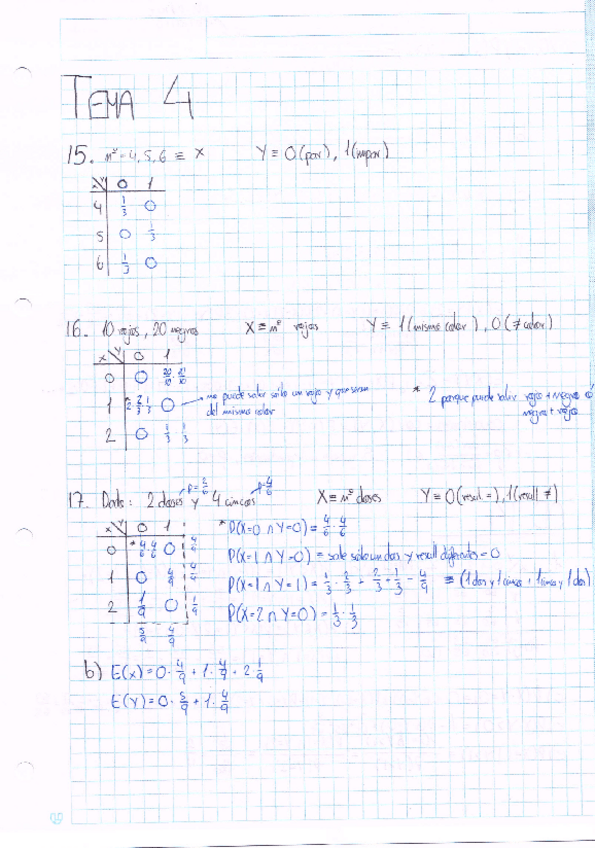 TEMA 4
15. nº = 4, 5, 6 ≡ X Y ≡ 0 (par), 1 (impar)
X\Y 0 1
4 1/3 0
5 0 1/3
6 1/3 0
16. 10 rojos, 20 negros X ≡ nº rojos Y ≡ 1 (mismo color), 0 (≠ color)
X\Y 0 1
0 0
1 *2·2/3·1/3 0 → no puede salir sólo un rojo y que sean
del mismo color
* 2 porque puede salir rojo + negro ó
negro + rojo
2 0 1/3·1/3
17. Dado: 2 doses y 4 cincos X ≡ nº doses Y ≡ 0 (result =), 1 (result ≠)
P=2/6 P=4/6
X\Y 0 1
0 *4/6·4/6 0 4/9
1 0 4/9 4/9
2 1/9 0 1/9
5/9 4/9
* P(X=0 ∩ Y=0) = 4/6·4/6
P(X=1 ∩ Y=0) = sale sólo un dos y result diferentes = 0
P(X=1 ∩ Y=1) = 1/3·2/3 + 2/3·1/3 = 4/9 ≡ (1 dos y 1 cinco + 1 cinco y 1 dos)
P(X=2 ∩ Y=0) = 1/3·1/3
b) E(X) = 0·4/9 + 1·4/9 + 2·1/9
E(Y) = 0·5/9 + 1·4/9